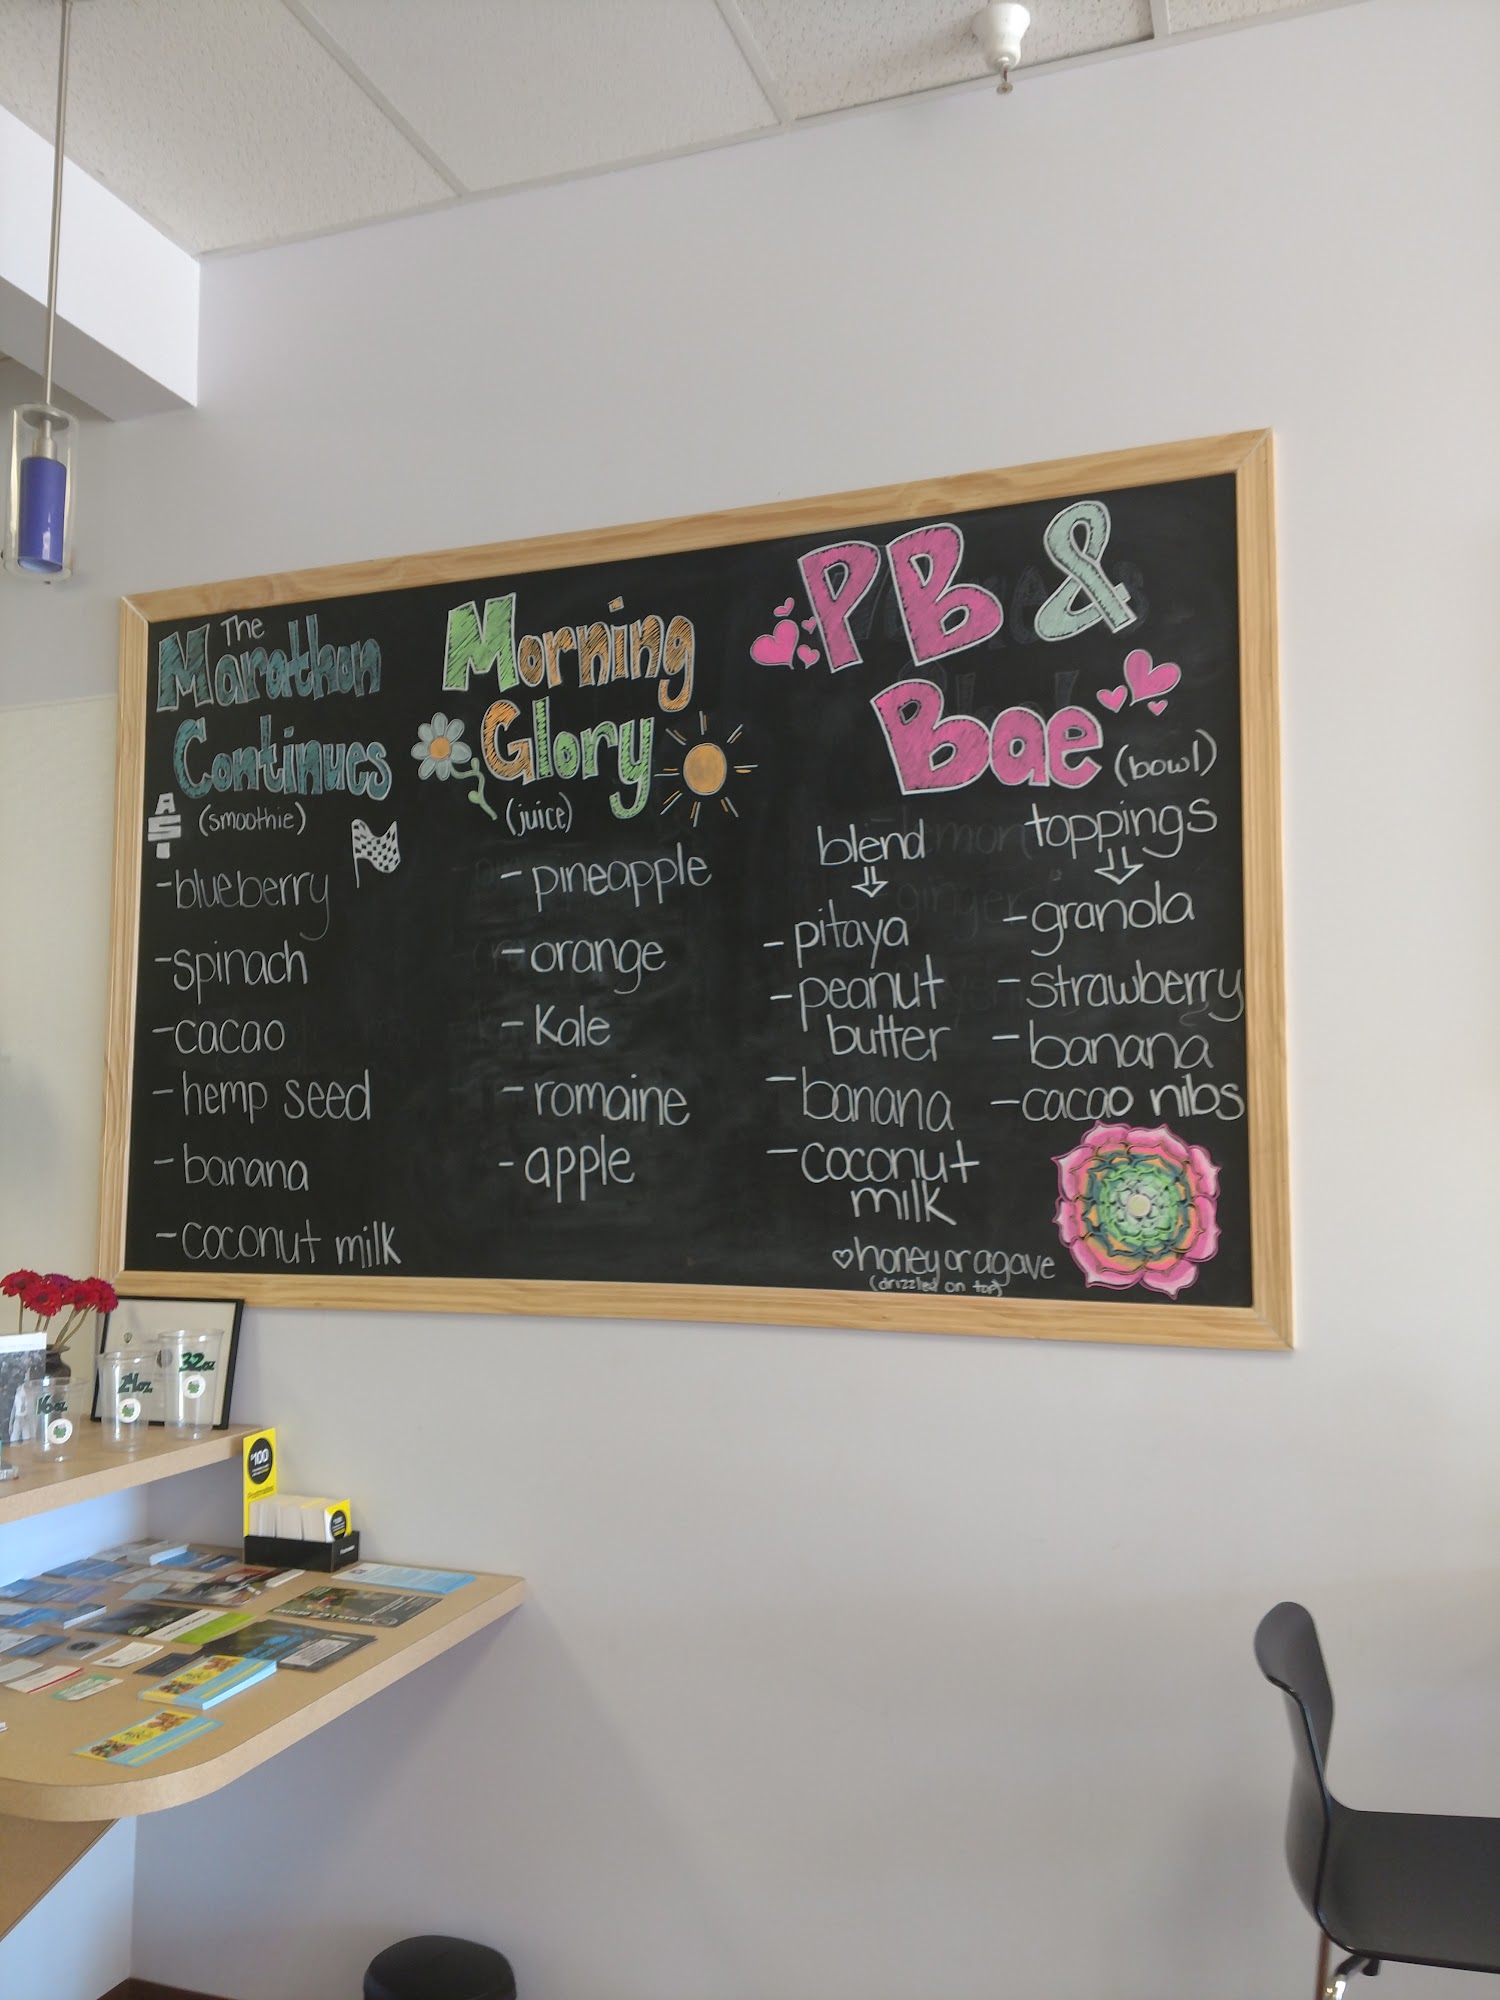 The
Marathon
Continues
(smoothie)
-blueberry
-spinach
-cacao
-hemp seed
-banana
-coconut milk
Morning
Glory
(juice)
-pineapple
-orange
-Kale
-romaine
-apple
PB &
Bae (bowl)
blend
-pitaya
-peanut
butter
-banana
-coconut
milk
toppings
-granola
-strawberry
-banana
-cacao nibs
honey or agave
(drizzled on top)
16oz
24oz
32oz
$100
Postmates